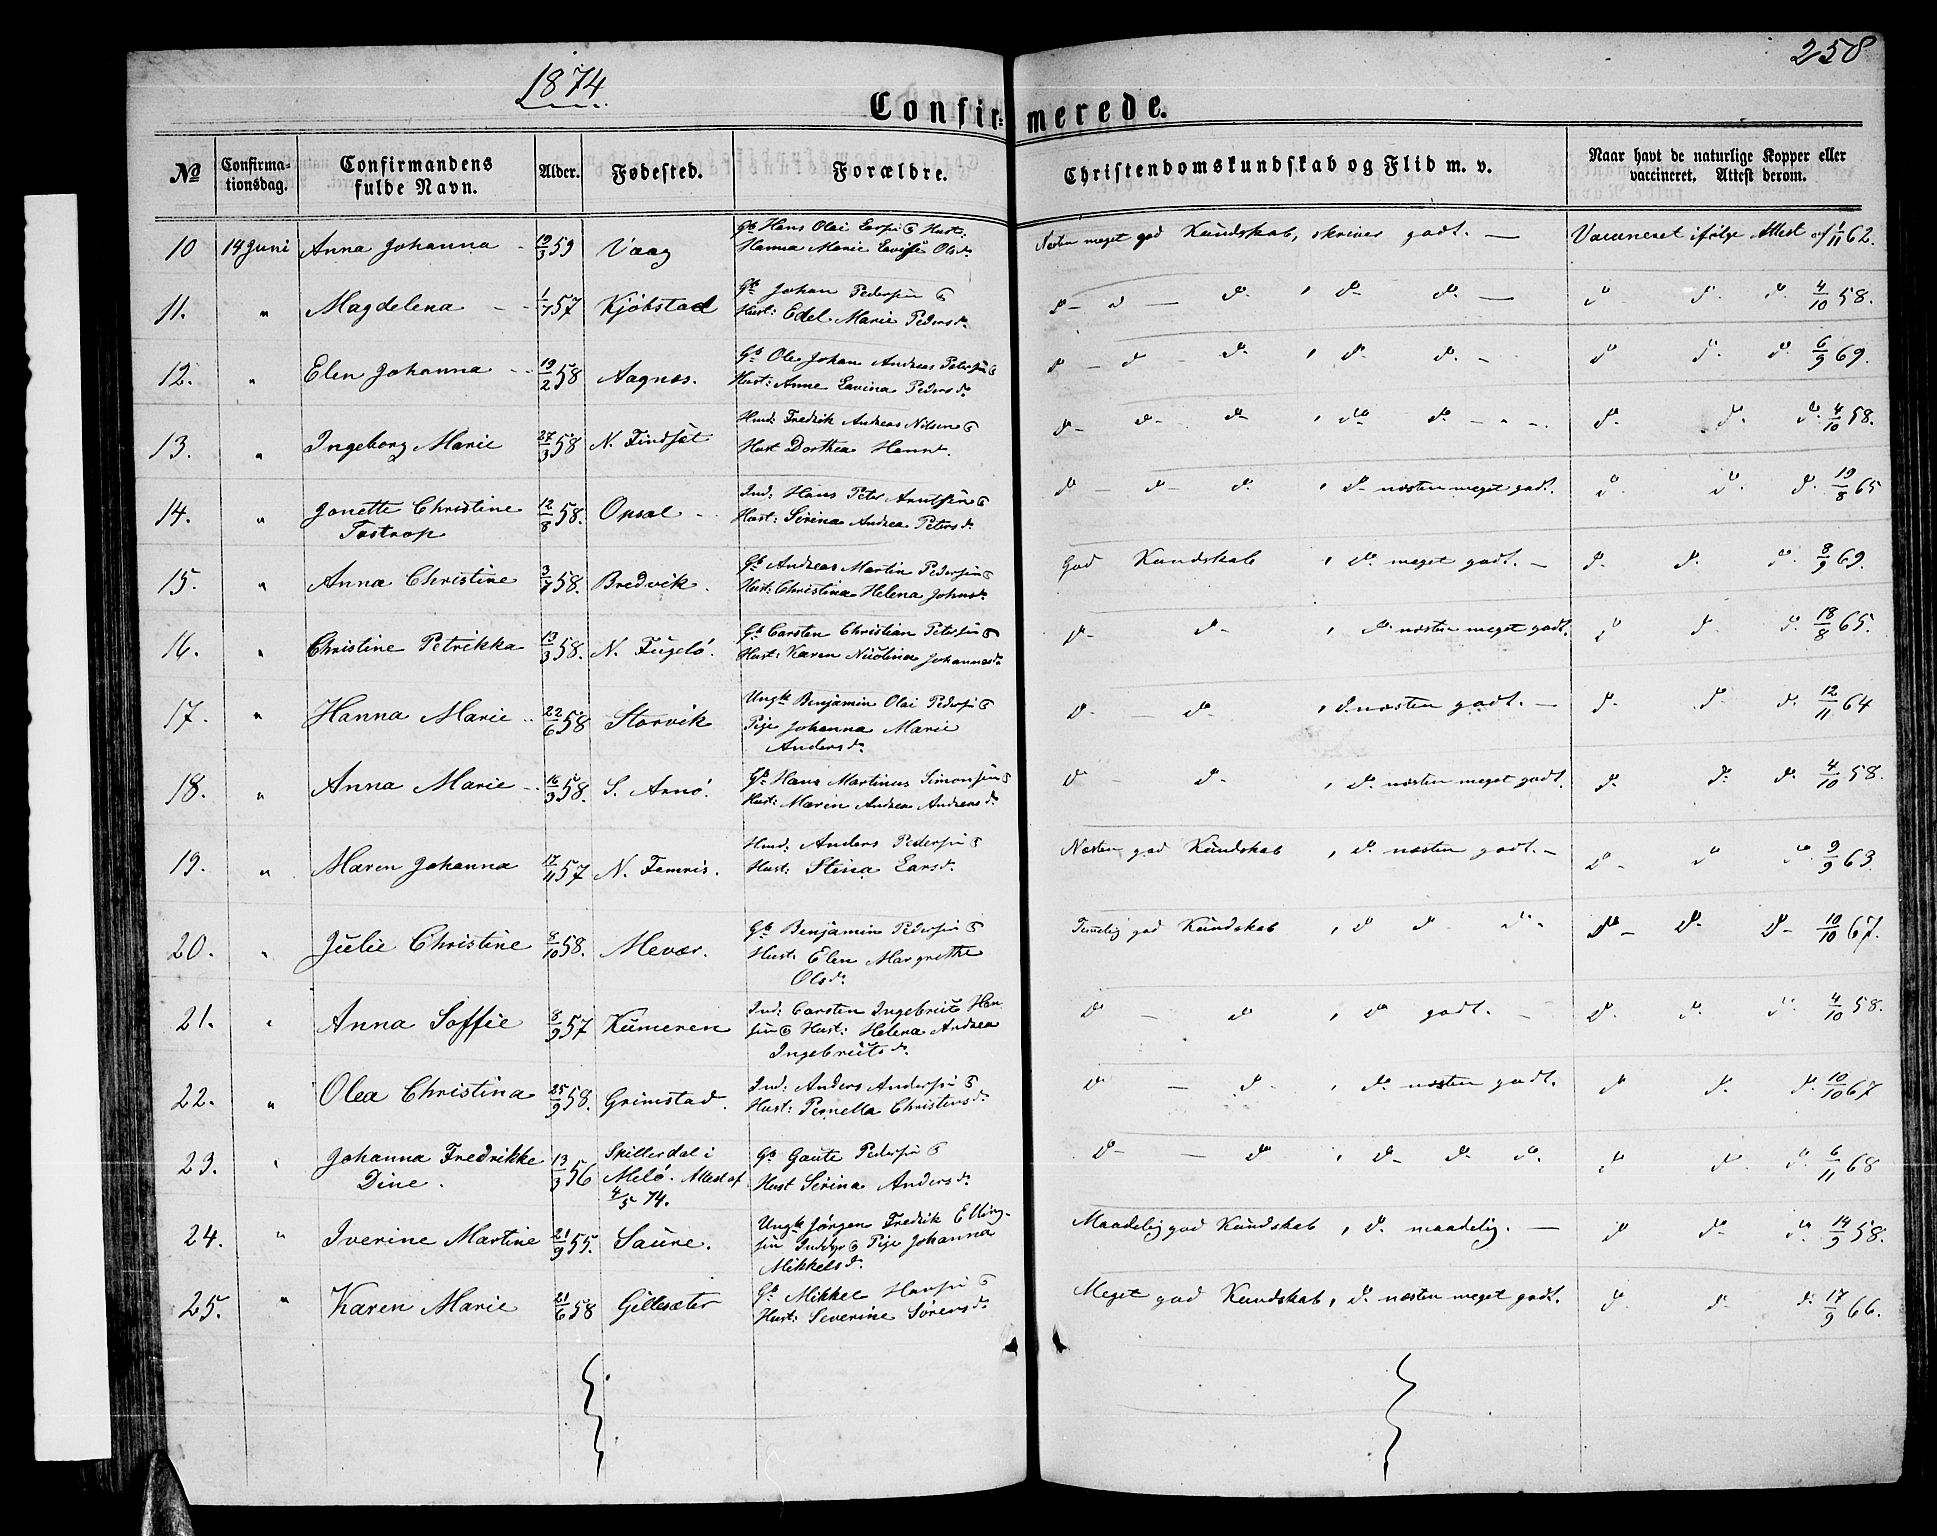 1874
258
Confirmerede.
№ Confirmationsdag. Confirmandens fulde Navn. Alder. Fødested. Forældre. Christendomskundskab og Flid m. v. Naar havt de naturlige Kopper eller vaccineret. Attest derom.
10 14 Juni Anna Johanna 19/3 59 Vaag Gb Hans Olai Larsen & Hust: Hanna Marie Lovise Olsdr Næsten meget god Kundskab, skriver godt. — Vaccineret ifølge Attest af 1/11 62.
11. " Magdelena 1/7 57 Kjøbstad Gb Johan Pedersen & Hust: Edel Marie Pedersdr do — do — do , do do — do do do 4/10 58.
12. " Elen Johanna 19/2 58 Aagnes. Gb Ole Johan Andreas Petersen & Hust: Anne Lavina Pedersdr do — do — do , do do — do do do 6/9 69.
13. " Ingeborg Marie 27/3 58 N. Findset Hmd: Fredrik Andreas Nilsen & Hust Dorthea Hansdr do — do — do , do do — do do do 4/10 58.
14. " Jonette Christine Tostrop 12/8 58. Opsal Ind: Hans Peter Arntsen & Hust: Serina Andrea Petersdr do — do — do , do næsten meget godt. do do do 19/8 65
15. " Anna Christine 3/7 58. Bredvik. Gb Andreas Martin Pedersen & Hust: Christina Helena Johnsdr God Kundskab , do meget godt. — do do do 8/9 69.
16. " Christine Petrikka 13/3 58. N. Fugelø. Gb Carsten Christian Petersen & Hust: Karen Nicolina Johannesdr do do , do næsten meget godt. do do do 18/8 65.
17. " Hanna Marie 22/6 58 Storvik Ungk Benjamin Olai Pedersen & Pige Johanna Marie Andersdr do — do , do næsten godt. — do do do 12/11 64
18. " Anna Marie 16/3 58. S. Arnø. Gb Hans Martinus Simonsen & Hust: Maren Andrea Andreasdr do — do , do næsten meget godt. do do do 4/10 58.
19. " Maren Johanna 17/11 57 N. Femris. Hmd: Anders Pedersen & Hust: Stina Larsdr Næsten god Kundskab , do næsten godt. — do do do 9/9 63.
20. " Julie Christine 8/10 58. Mevær. Gb Benjamin Pedersen & Hust: Elen Margrethe Olsdr Temelig god Kundskab , do do do do do do 10/10 67.
21. " Anna Soffie 8/9 57 Kumeren Ind: Carsten Ingebrict Hansen & Hust: Helena Andrea Ingebrictsdr do do , do godt. — do do do 4/10 58.
22. " Olea Christina 25/9 58. Grimstad. Ind: Anders Andersen & Hust: Pernella Christensdr do — do , do næsten godt. do do do 10/10 67
23. " Johanna Fredrikke Dine. 13/3 56 Spillerdal i Melø. Attest af 4/5 74. Gb Gaute Pedersen & Hust Serina Andersdr do — do , do do do do do do 6/11 68
24. " Iverine Martine 21/9 55. Saure. Ungk Jørgen Fredrik Ellingsen & Pige Johanna Mikkelsdr Maadelig god Kundskab , do maadelig. — do do do 14/9 58.
25. " Karen Marie 21/6 58 Gillesæter Gb Mikkel Hansen & Hust: Severine Sørensdr Meget god Kundskab, do næsten meget godt. do do do 17/9 66.